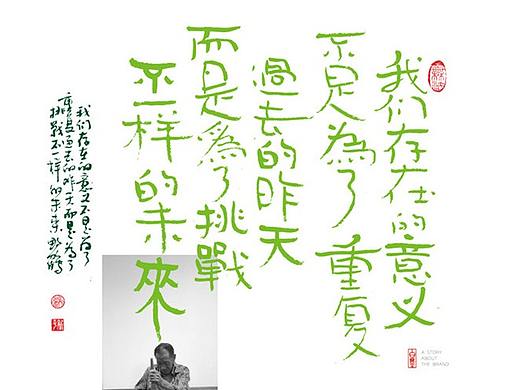 我们存在的意义
不是為了重复
過去的昨天
而是為了挑戰
不一样的未來
我们存在的意义不是为了
重复过去的昨天而是为了
挑戰不一样的未来
A STORY
ABOUT
THE BRAND